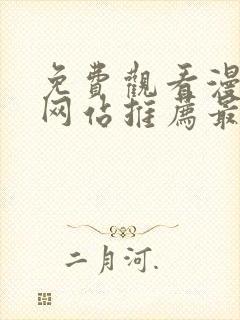 免費觀看漫
网站推薦最
二月河.